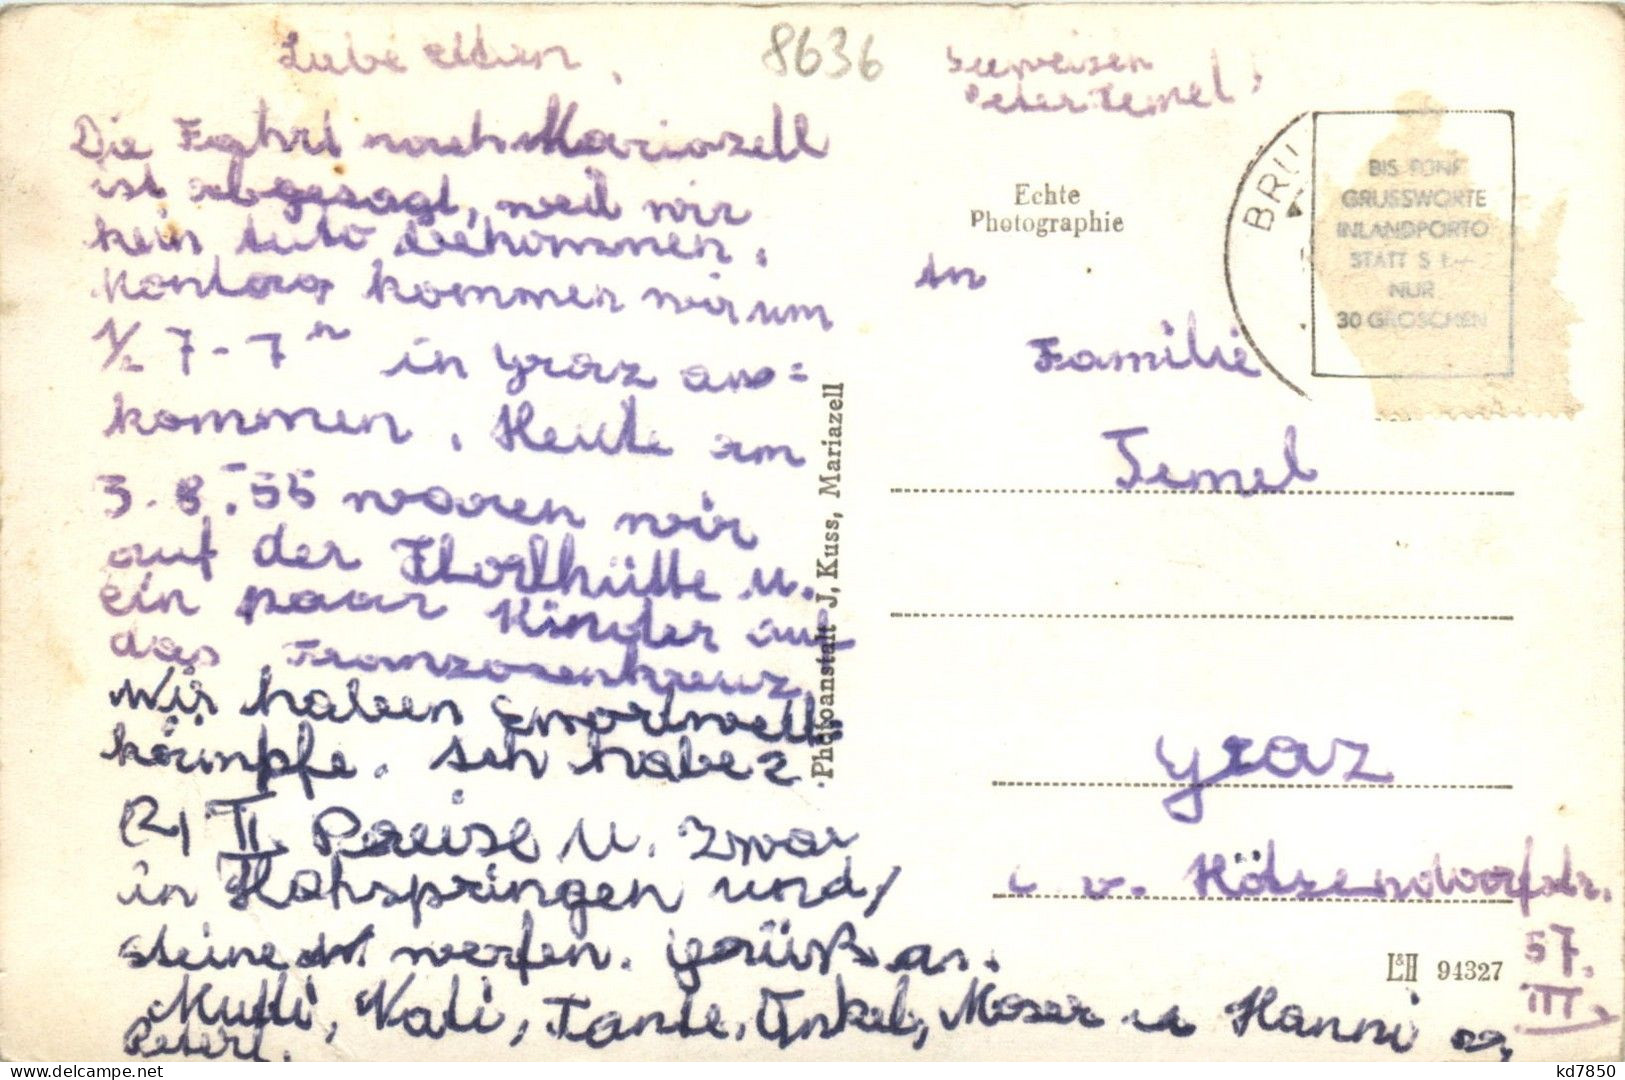 Liebe Eltern,
8636
Seewiesen
Peter Temel!
Die Fahrt nach Mariazell
ist abgesagt, weil wir
kein Auto bekommen.
kommen wir um
1/2 7 - 7 h in Graz an=
kommen. Heute am
3.8.55 waren wir
auf der Florlhütte u.
ein paar Kinder auf
das Franzosenkreuz.
Wir haben Sportwett-
kämpfe. Ich habe 2
(2) II. Preise u. zwar
in Hohspringen und
steine werfen. Grüß an.
Mutti, Vati, Tante, Onkel, Moser u Hanni
Peterl.
Echte
Photographie
Photoanstalt J. Kuss, Mariazell
BRU
BIS FÜNF
GRUSSWORTE
INLANDPORTO
STATT S 1.—
NUR
30 GROSCHEN
An
Familie
Temel
Graz
v. Hötzendorfstr.
57.
III.
L&H 94327
kd7850